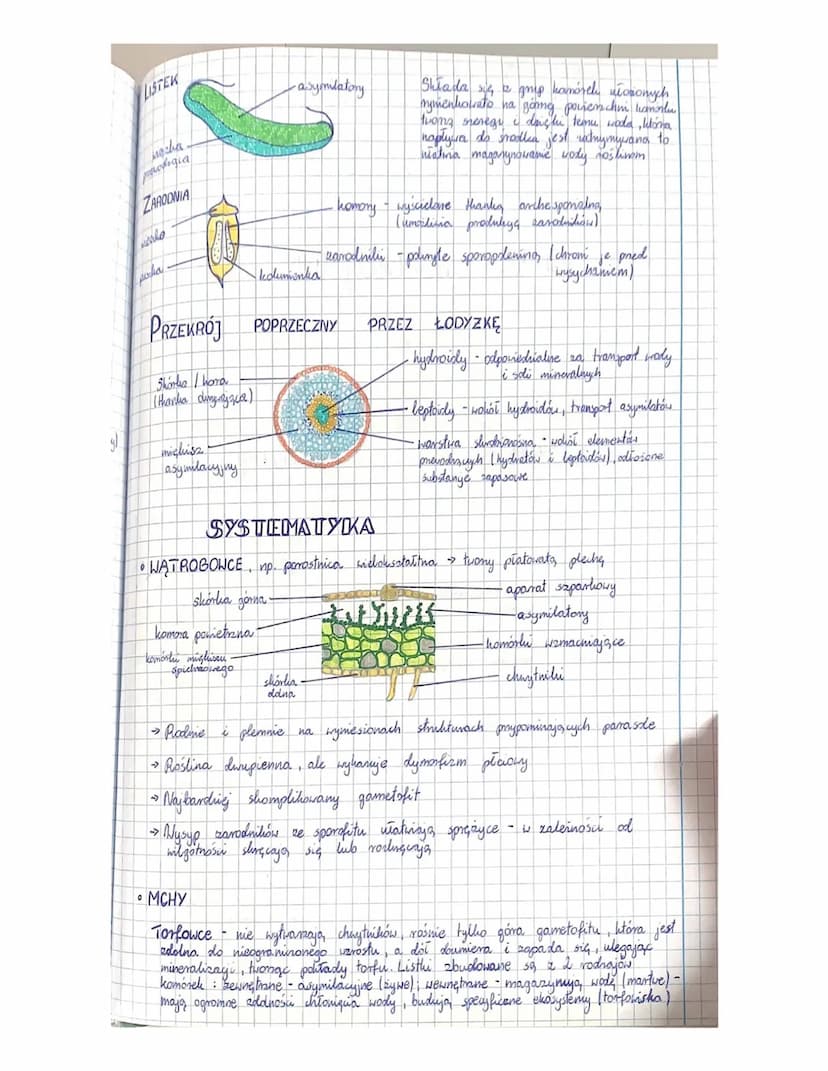 LISTEK
asymilatory
wiązka
przewodząca
Składa się z grup komórek ułożonych
rynienkowato na górnej powierzchni komórki
tworzą szeregi i dzięki temu woda, która
napływa do środka jest utrzymywana to
ułatwia magazynowanie wody roślinom
ZARODNIA
wieczko
puszka
kolumienka
komory - wyścielone tkanką archesporialną
(umożliwia produkcję zarodników)
zarodniki - pokryte sporopoleniną (chroni je przed
wysychaniem)
PRZEKRÓJ POPRZECZNY PRZEZ ŁODYŻKĘ
Skórka / kora
(tkanka okrywająca)
miękisz
asymilacyjny
hydroidy - odpowiedzialne za transport wody
i soli mineralnych
leptoidy - wokół hydroidów, transport asymilatów
warstwa skrobionośna - wokół elementów
przewodzących (hydroidów i leptoidów), odłożone
substancje zapasowe
SYSTEMATYKA
• WĄTROBOWCE, np. porostnica wielokształtna → tworzy płatowatą plechę
skórka górna
komora powietrzna
komórki miękiszu
spichrzowego
skórka
dolna
aparat szparkowy
asymilatory
komórki wzmacniające
chwytniki
→ Rodnie i plemnie na wyniesionach strukturach przypominających parasole
→ Roślina dwupienna, ale wykazuje dymorfizm płciowy
→ Najbardziej skomplikowany gametofit
→ Wysyp zarodników ze sporofitu ułatwiają sprężyce - w zależności od
wilgotności skręcają się lub rozkręcają
• MCHY
Torfowce - nie wytwarzają chwytników, rośnie tylko góra gametofitu, która jest
zdolna do nieograniczonego wzrostu, a dół obumiera i zapada się, ulegając
mineralizacji, tworząc pokłady torfu. Listki zbudowane są z 2 rodzajów
komórek: zewnętrzne - asymilacyjne (żywe); wewnętrzne - magazynują wodę (martwe) -
mają ogromne zdolności chłonięcia wody, budują specyficzne ekosystemy (torfowiska)